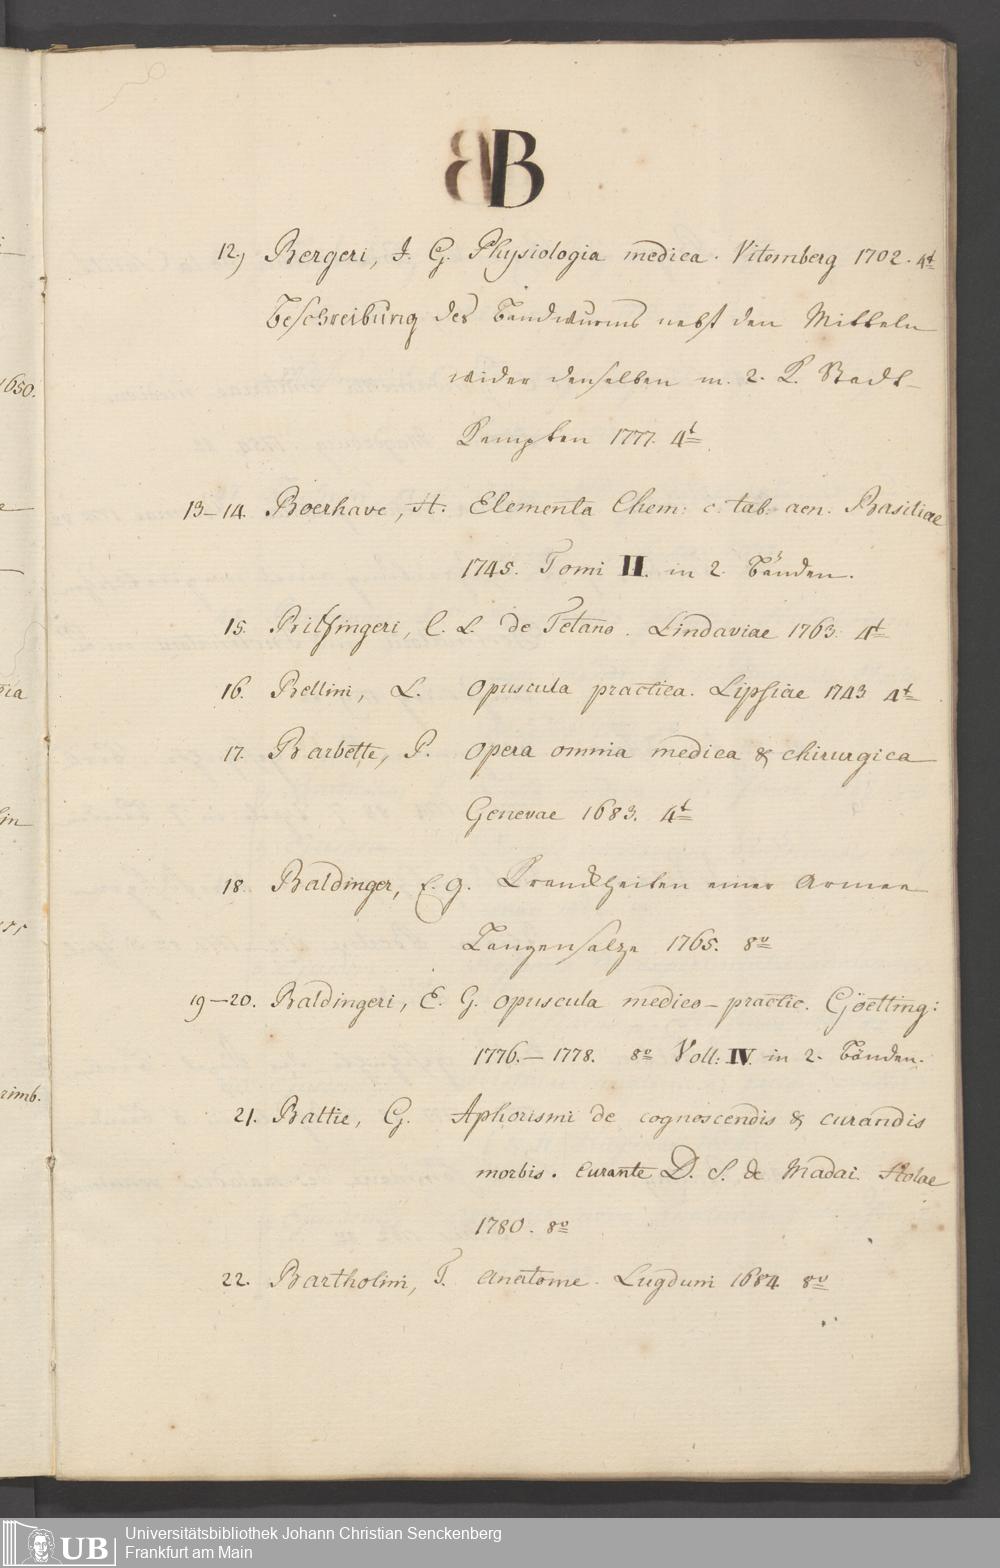 B
12) Bergeri, J. G. Physiologia medica. Vitemberg 1702. 4t
Beschreibung des Bandwurms nebst den Mitteln
wider denselben m. 2. K. Stadt-
Kempten 1777. 4t
13-14. Boerhave, H. Elementa Chem: c. tab. aen. Basiliae
1745. Tomi II. in 2. Bänden.
15. Brilsingeri, C. L. de Tetano. Lindaviae 1763. 4t
16. Bellini, L. opuscula practica. Lipsiae 1743 4t
17. Barbette, P. opera omnia medica & chirurgica
Genevae 1683. 4t
18. Baldinger, E. G. Krankheiten einer Armee
Langensalza 1765. 8v
19-20. Baldingeri, E. G. opuscula medico-practic. Göetting:
1776.-1778. 8o Voll: IV. in 2. Bänden.
21. Battie, G. Aphorismi de cognoscendis & curandis
morbis. curante D. S. de Madai. Halae
1780. 8o
22. Bartholini, T. anatome. Lugduni 1684. 8v
1650.
rimb.
UB
Universitätsbibliothek Johann Christian Senckenberg
Frankfurt am Main